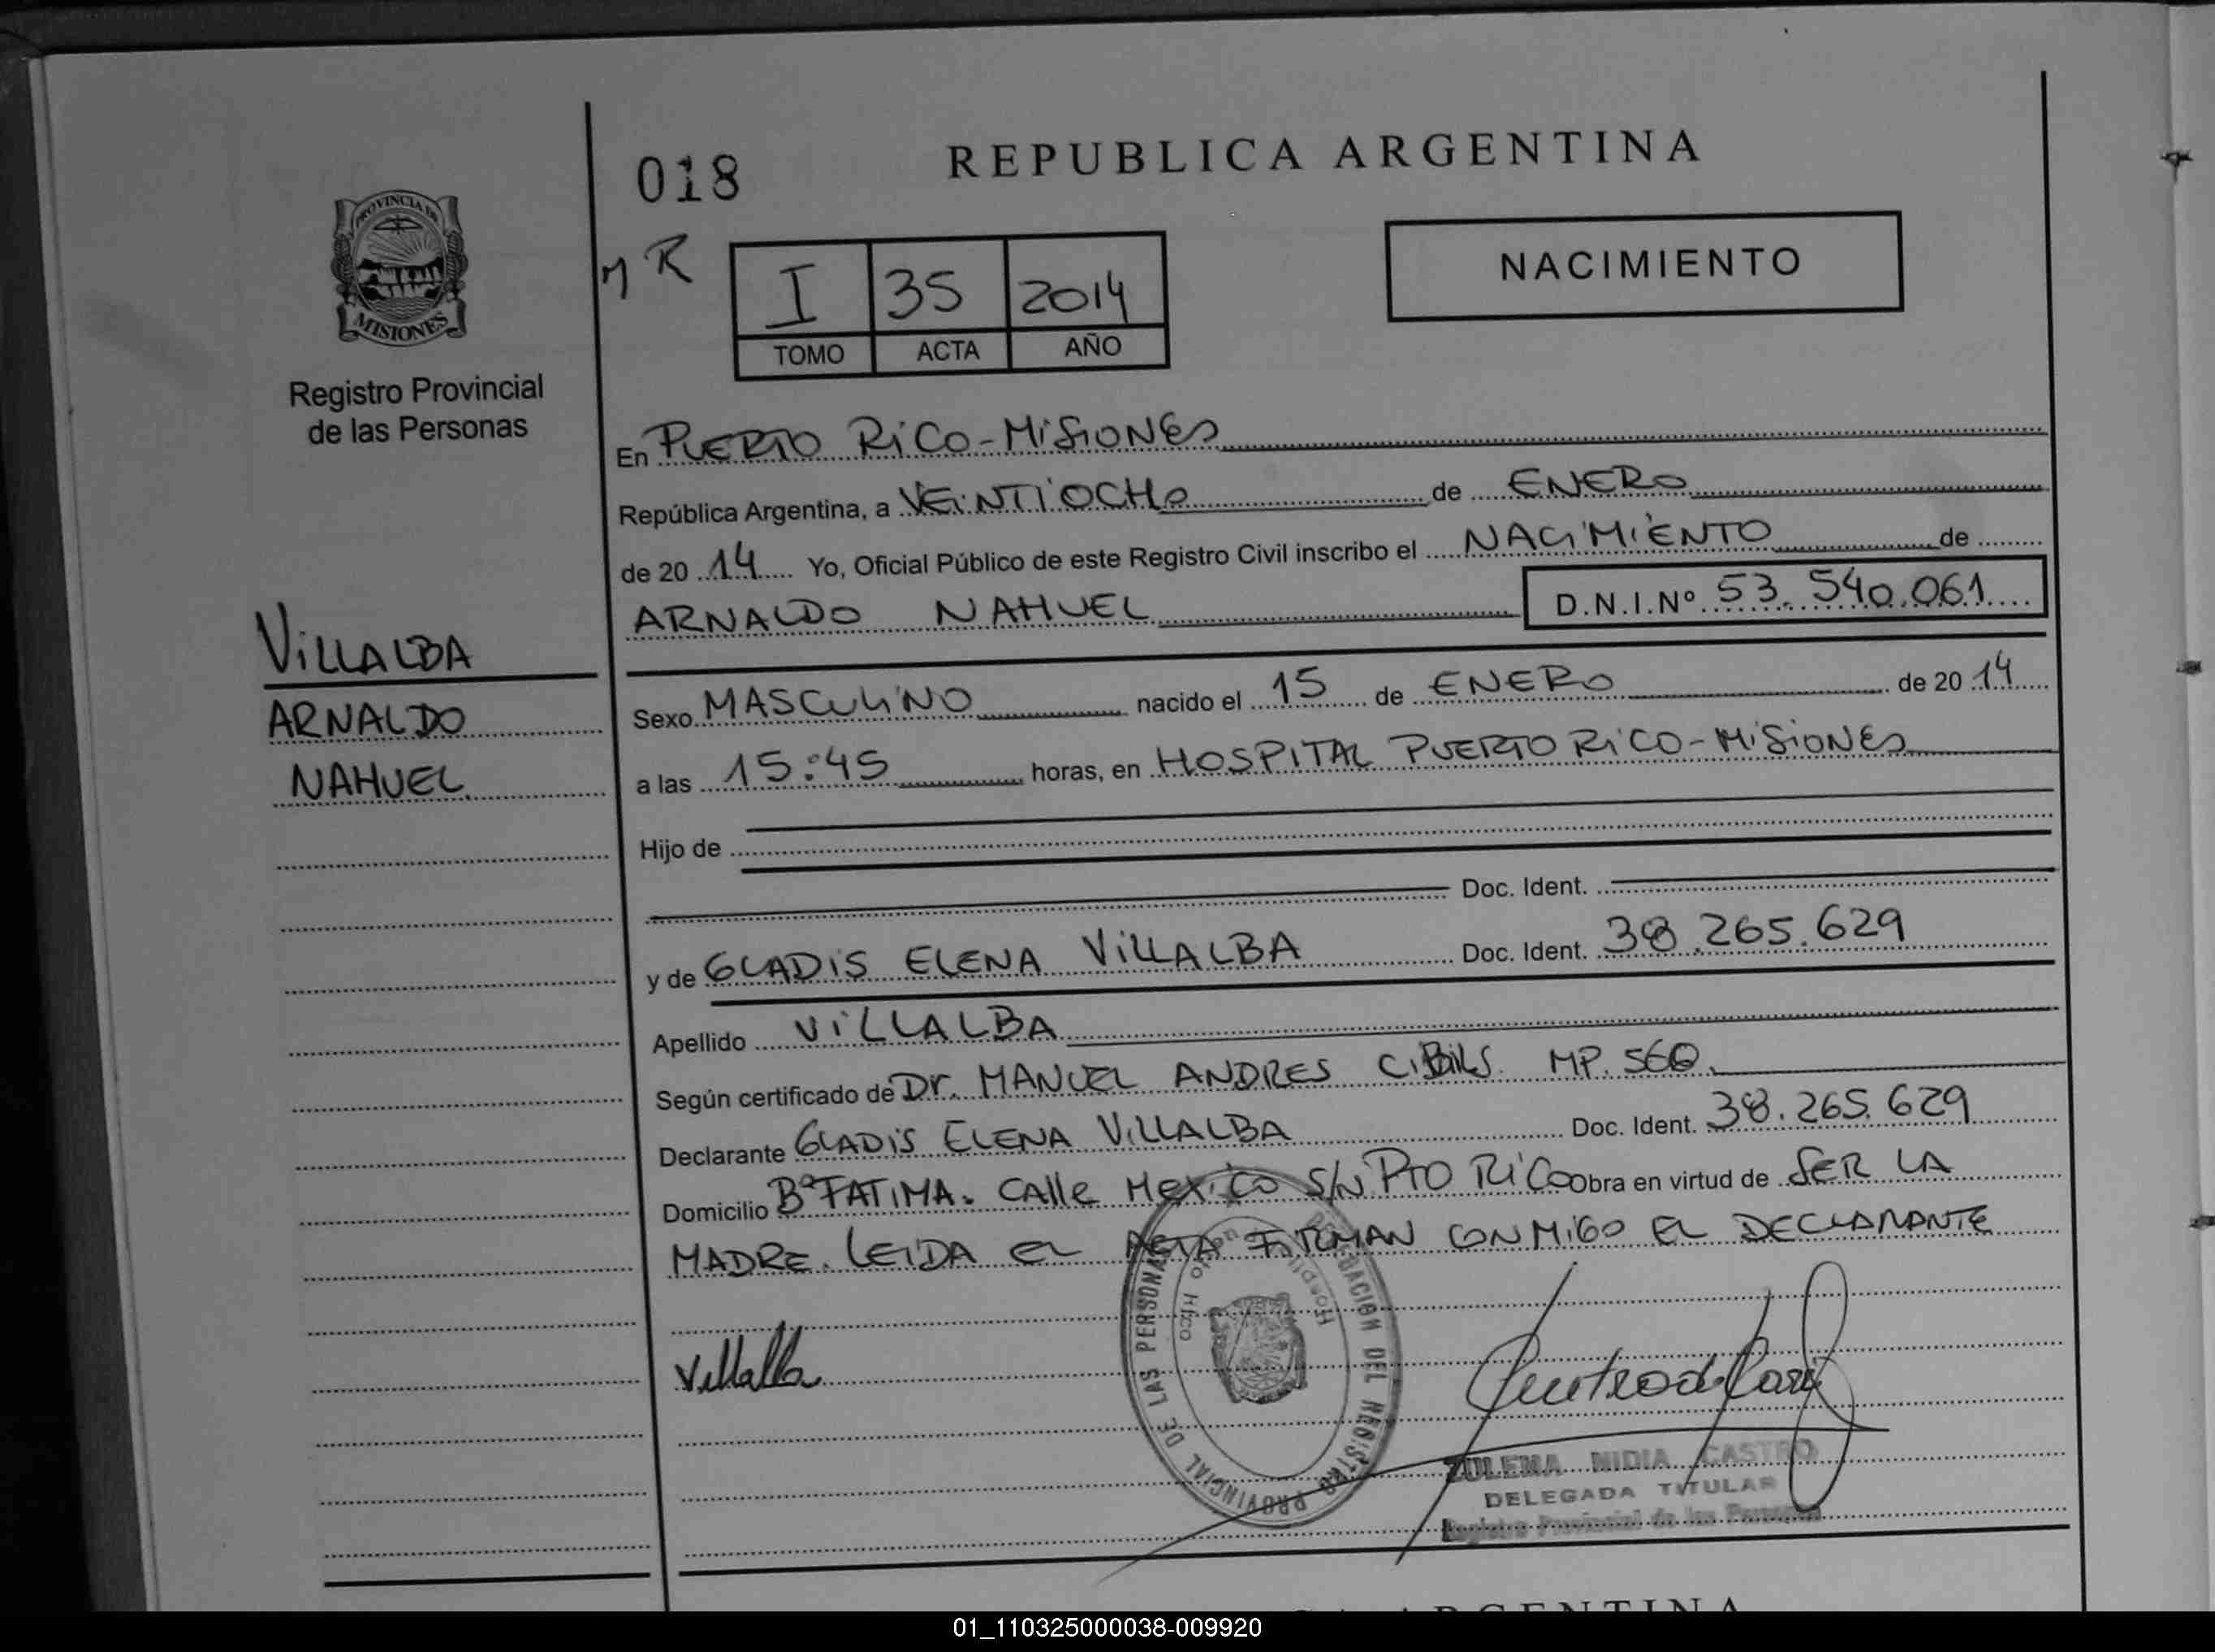 018
REPUBLICA ARGENTINA
PROVINCIA DE
MISIONES
Registro Provincial
de las Personas
MR
I 35 2014
TOMO ACTA AÑO
NACIMIENTO
En PUERTO RICO-MISIONES
República Argentina, a VEINTIOCHO de ENERO
de 20 14 Yo, Oficial Público de este Registro Civil inscribo el NACIMIENTO de
ARNALDO NAHUEL D.N.I.Nº 53.540.061
VILLALBA
ARNALDO
NAHUEL
Sexo MASCULINO nacido el 15 de ENERO de 20 14
a las 15:45 horas, en HOSPITAL PUERTO RICO-MISIONES
Hijo de
Doc. Ident.
y de GLADIS ELENA VILLALBA Doc. Ident. 38.265.629
Apellido VILLALBA
Según certificado de Dr. MANUEL ANDRES CIBILS MP. 560
Declarante GLADIS ELENA VILLALBA Doc. Ident. 38.265.629
Domicilio Bº FATIMA. Calle MEXICO S/N PTO RICO Obra en virtud de SER LA
MADRE. LEIDA EL ACTA FIRMAN CONMIGO EL DECLARANTE
Villalba
DELEGACION DEL REGISTRO PROVINCIAL DE LAS PERSONAS
Hospital Rico
ZULEMA NIDIA CASTRO
DELEGADA TITULAR
Registro Provincial de las Personas
ARGENTINA
01_110325000038-009920